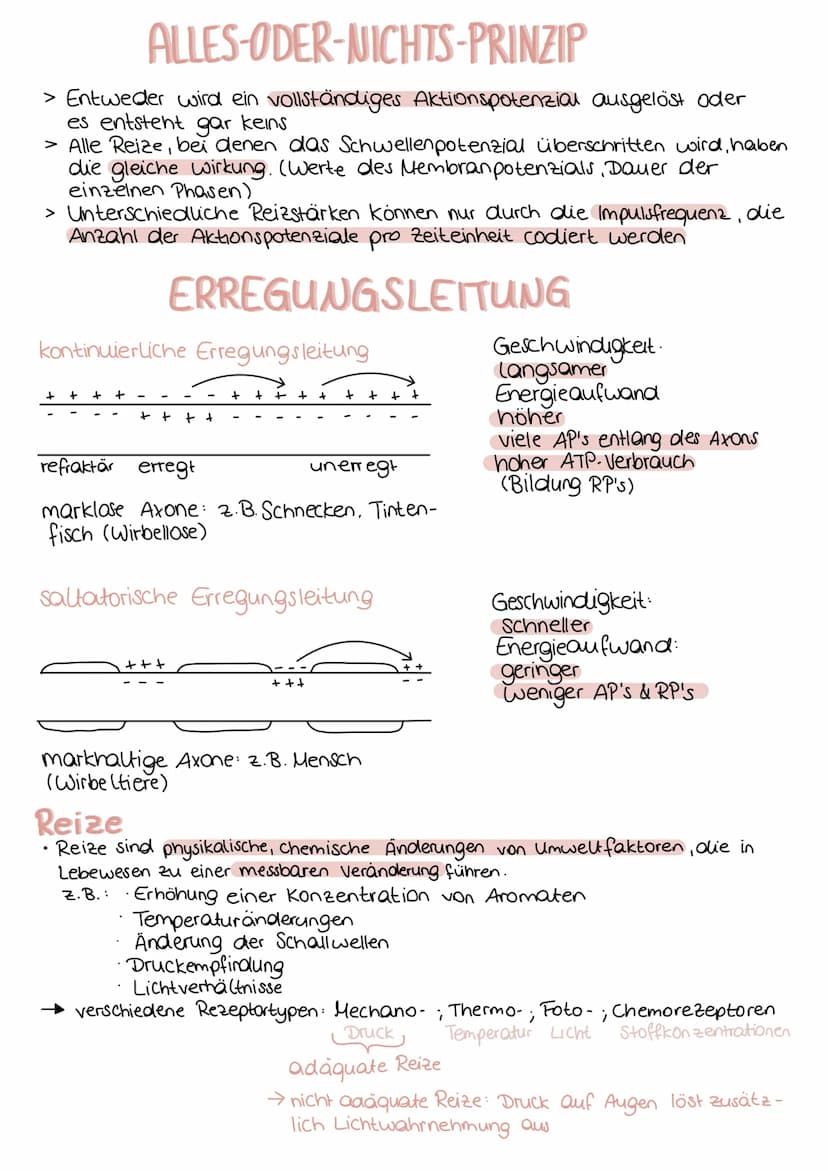 ALLES-ODER-NICHTS-PRINZIP
> Entweder wird ein vollständiges Aktionspotenzial ausgelöst oder
es entsteht gar keins
> Alle Reize, bei denen das Schwellenpotenzial überschritten wird, haben
die gleiche Wirkung. (Werte des Membranpotenzials, Dauer der
einzelnen Phasen)
> Unterschiedliche Reizstärken können nur durch die Impulsfrequenz, die
Anzahl der Aktionspotenziale pro Zeiteinheit codiert werden
ERREGUNGSLEITUNG
kontinuierliche Erregungsleitung
+ + + + - - - - + + + + + + + +
- - - - + + + + - - - - - - - -
refraktär erregt unerregt
marklose Axone: z.B. Schnecken, Tinten-
fisch (Wirbellose)
Geschwindigkeit:
langsamer
Energieaufwand
höher
viele AP's entlang des Axons
hoher ATP-Verbrauch
(Bildung RP's)
saltatorische Erregungsleitung
+++ --- ++
--- +++ --
markhaltige Axone: z.B. Mensch
(Wirbeltiere)
Geschwindigkeit:
schneller
Energieaufwand:
geringer
weniger AP's & RP's
Reize
· Reize sind physikalische, chemische Änderungen von Umweltfaktoren, die in
Lebewesen zu einer messbaren Veränderung führen.
z.B.: · Erhöhung einer Konzentration von Aromaten
· Temperaturänderungen
· Änderung der Schallwellen
· Druckempfindung
· Lichtverhältnisse
→ verschiedene Rezeptortypen: Mechano- ; Thermo- ; Foto- ; Chemorezeptoren
Druck Temperatur Licht Stoffkonzentrationen
adäquate Reize
→ nicht adäquate Reize: Druck auf Augen löst zusätz-
lich Lichtwahrnehmung aus